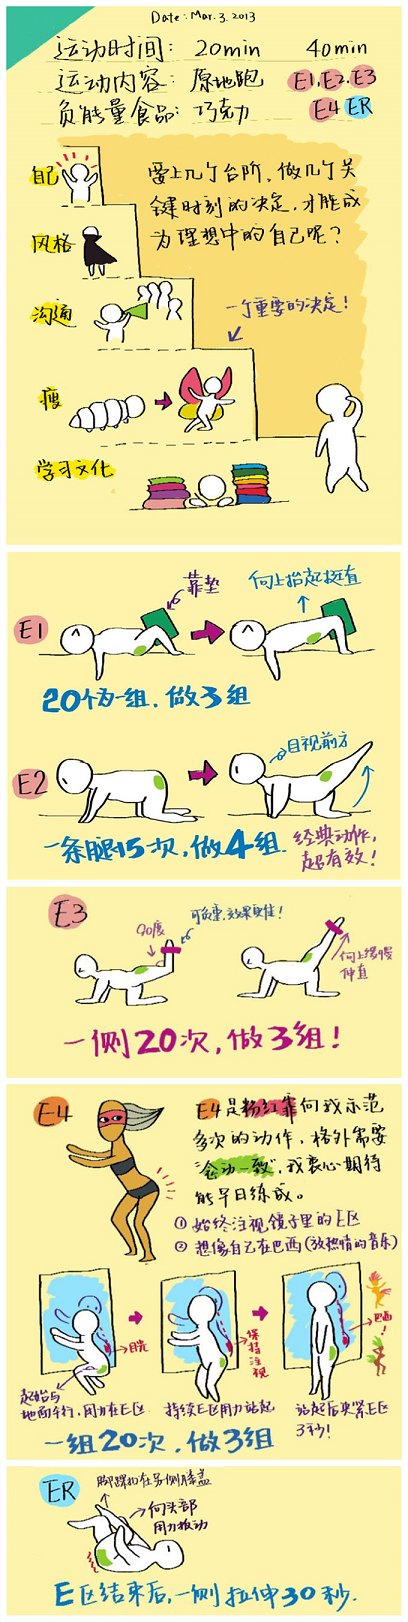 Date: Mar. 3. 2013
运动时间: 20min 40min
运动内容: 原地跑 E1, E2, E3
负能量食品: 巧克力 E4 ER
自己
要上几个台阶, 做几个关
键时刻的决定, 才能成
为理想中的自己呢?
风格
沟通
一个重要的决定!
瘦
学习文化
E1
靠垫
向上抬起挺直
20个为一组, 做3组
E2
目视前方
一条腿15次, 做4组.
经典动作,
超有效!
E3
90度
可负重, 效果更佳!
向上缓慢
伸直
一侧20次, 做3组!
E4
E4是粉红靠向我示范
多次的动作, 格外需要
"念动一致", 我衷心期待
能早日练成。
① 始终注视镜子里的E区
② 想像自己在巴西(放热情的音乐)
目光
保持注视
巴西!
起始与
地面平行, 用力在E区
持续E区用力站起
站起后夹紧E区
3秒!
一组20次, 做3组
ER
脚踝扣在另一侧膝盖
向头部
用力扳动
E区结束后, 一侧拉伸30秒.